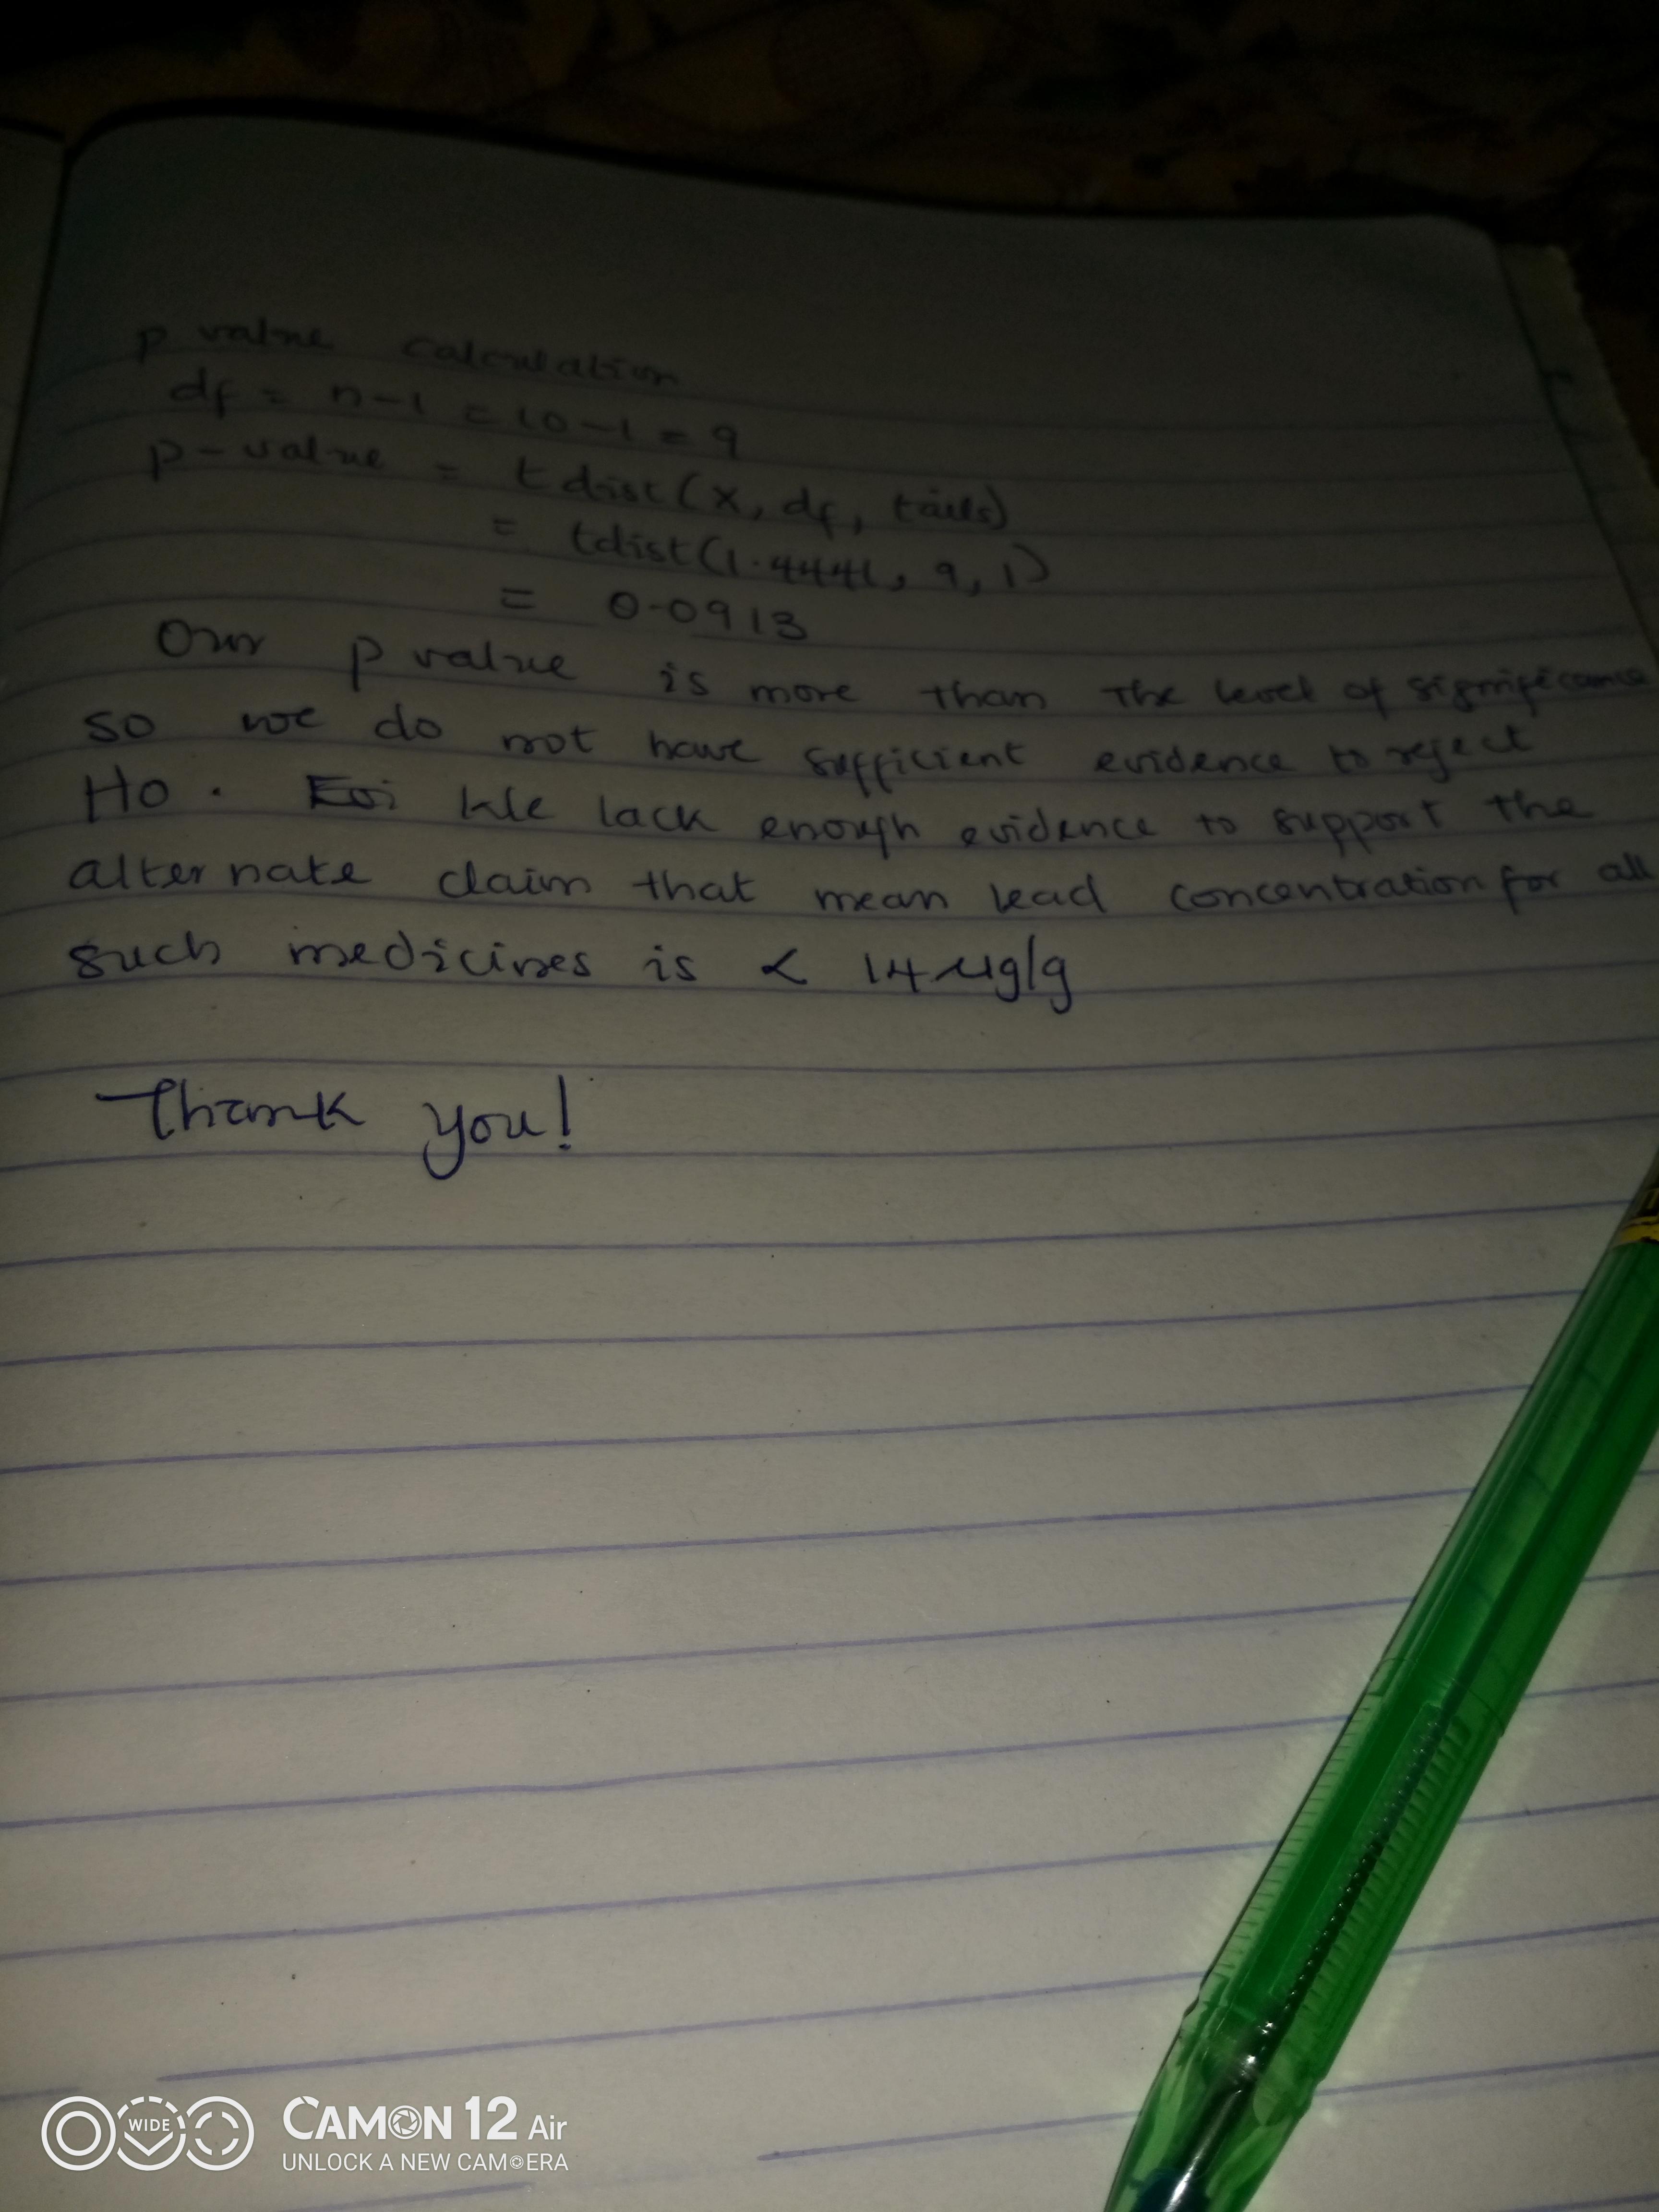 p value calculation
df = n-1 = 10-1 = 9
p-value = tdist(x, df, tails)
= tdist(1.4441, 9, 1)
= 0.0913
Our p value is more than the level of significance
so we do not have sufficient evidence to reject
H0. We lack enough evidence to support the
alternate claim that mean lead concentration for all
such medicines is < 14 µg/g
Thank you!
WIDE
CAMON 12 Air
UNLOCK A NEW CAMERA